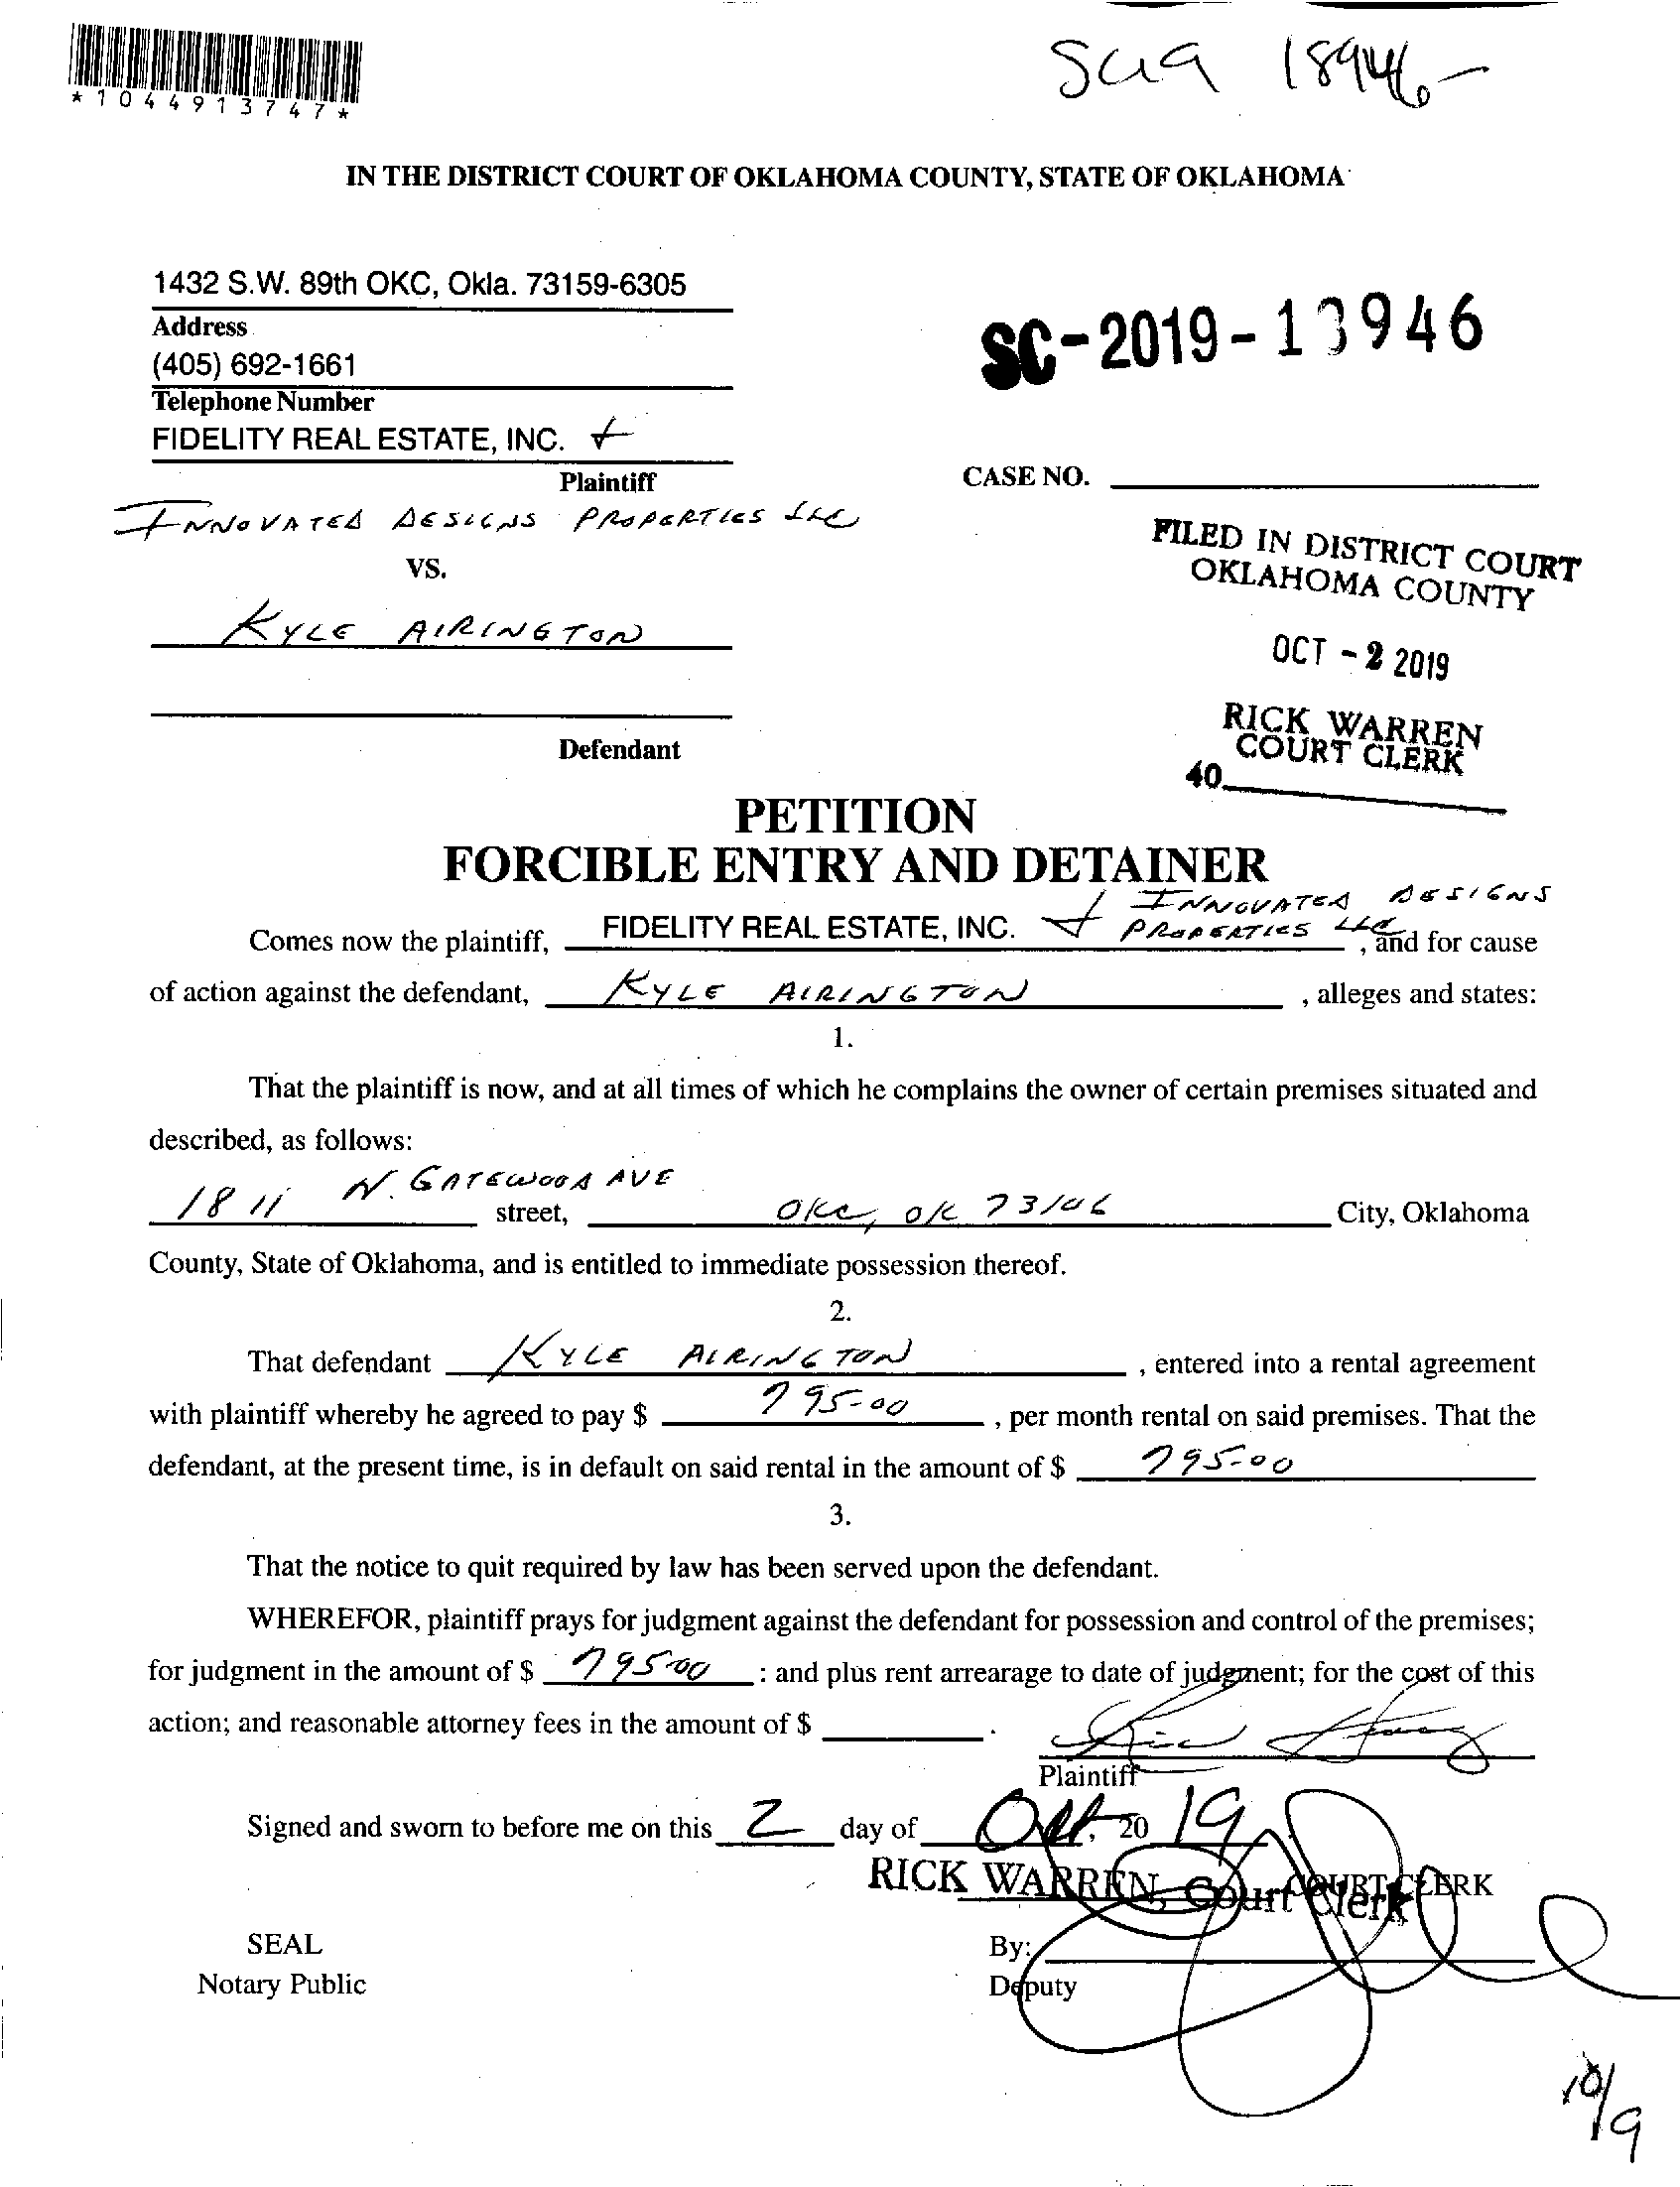 *1044913747*
SC19 18946-
IN THE DISTRICT COURT OF OKLAHOMA COUNTY, STATE OF OKLAHOMA
1432 S.W. 89th OKC, Okla. 73159-6305
Address
(405) 692-1661
Telephone Number
FIDELITY REAL ESTATE, INC. +
Plaintiff
INNOVATED DESIGNS PROPERTIES LLC
VS.
KYLE AIRINGTON
Defendant
SC-2019-13946
CASE NO.
FILED IN DISTRICT COURT
OKLAHOMA COUNTY
OCT -2 2019
RICK WARREN
COURT CLERK
40
PETITION
FORCIBLE ENTRY AND DETAINER
Comes now the plaintiff, FIDELITY REAL ESTATE, INC. + INNOVATED DESIGNS PROPERTIES LLC, and for cause
of action against the defendant, KYLE AIRINGTON, alleges and states:
1.
That the plaintiff is now, and at all times of which he complains the owner of certain premises situated and
described, as follows:
1811 N. GATEWOOD AVE street, OKC, OK 73106 City, Oklahoma
County, State of Oklahoma, and is entitled to immediate possession thereof.
2.
That defendant KYLE AIRINGTON, entered into a rental agreement
with plaintiff whereby he agreed to pay $ 795-00, per month rental on said premises. That the
defendant, at the present time, is in default on said rental in the amount of $ 795-00
3.
That the notice to quit required by law has been served upon the defendant.
WHEREFOR, plaintiff prays for judgment against the defendant for possession and control of the premises;
for judgment in the amount of $ 795-00 : and plus rent arrearage to date of judgment; for the cost of this
action; and reasonable attorney fees in the amount of $ .
Plaintiff
Signed and sworn to before me on this 2 day of Oct, 20 19
RICK WARREN, Court Clerk COURT CLERK
SEAL
Notary Public
By:
Deputy
10/9